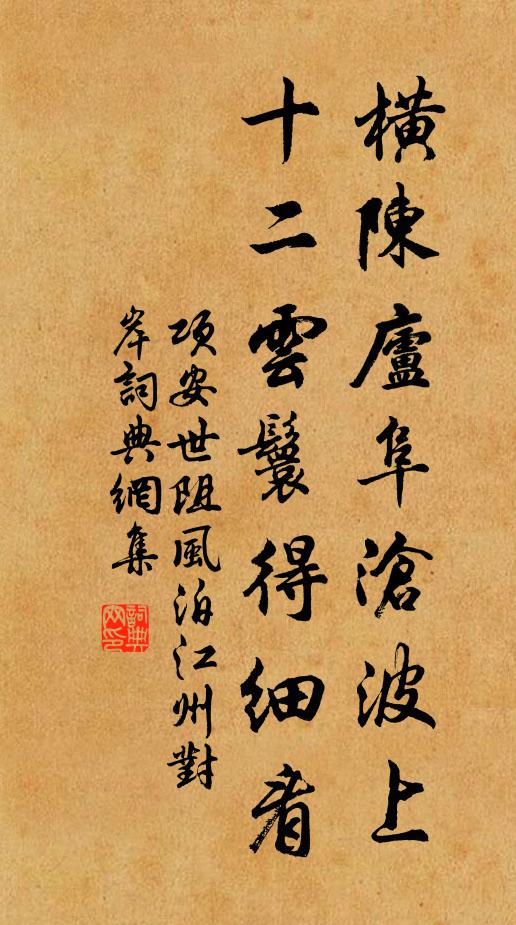 橫陳廬阜滄波上
十二雲鬟得細看
項安世阻風泊江州對
岸詞典網集
詞典
網印